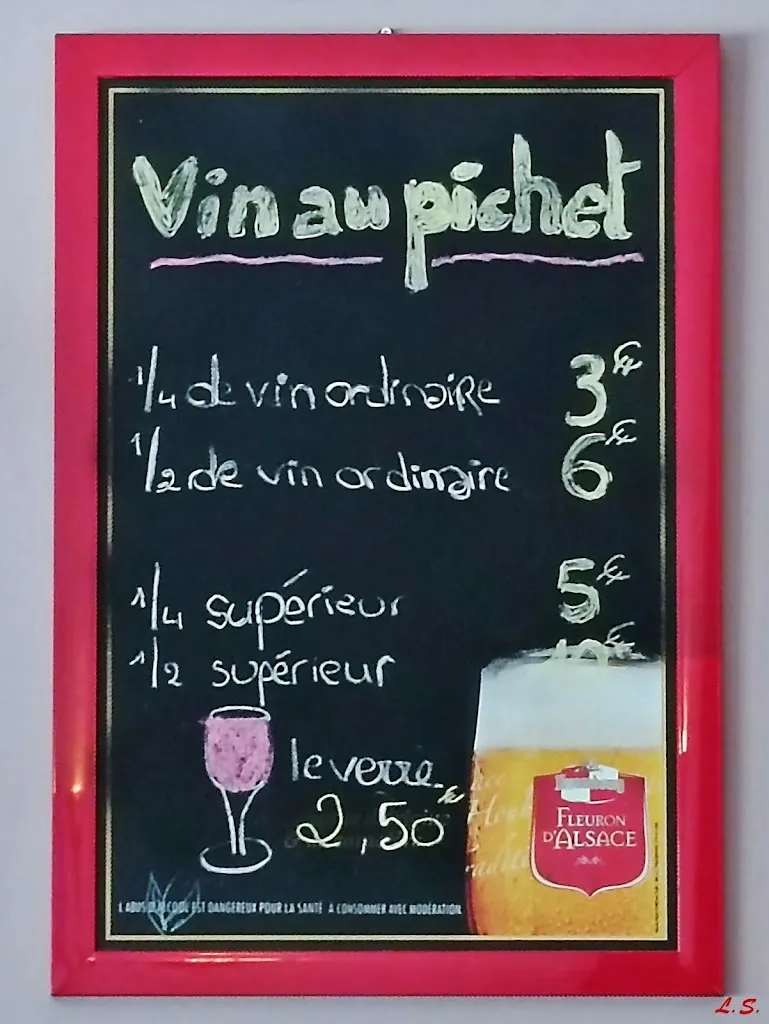 Vin au pichet
1/4 de vin ordinaire 3€
1/2 de vin ordinaire 6€
1/4 supérieur 5€
1/2 supérieur 10€
le verre
2,50€
FLEURON
D'ALSACE
L'ABUS D'ALCOOL EST DANGEREUX POUR LA SANTÉ À CONSOMMER AVEC MODÉRATION
L.S.